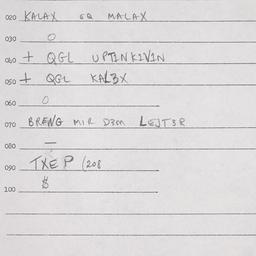 020 KALAX GR MALAX
030 O
040 + QGL UPTINKIVIN
050 + QGL KAL3X
060 O
070 BRENG MIR D3M LEJT3R
080 —
090 TXEP (208
100 $